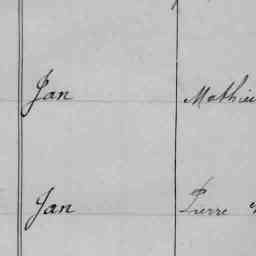 Jan Mathieu
Jan Pierre